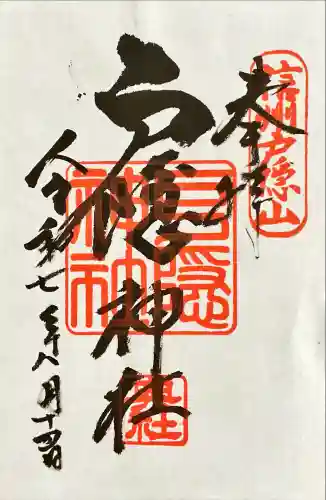 奉拝
信州戸隠山
戸隠神社
戸隠
神社
令和七年八月十四日